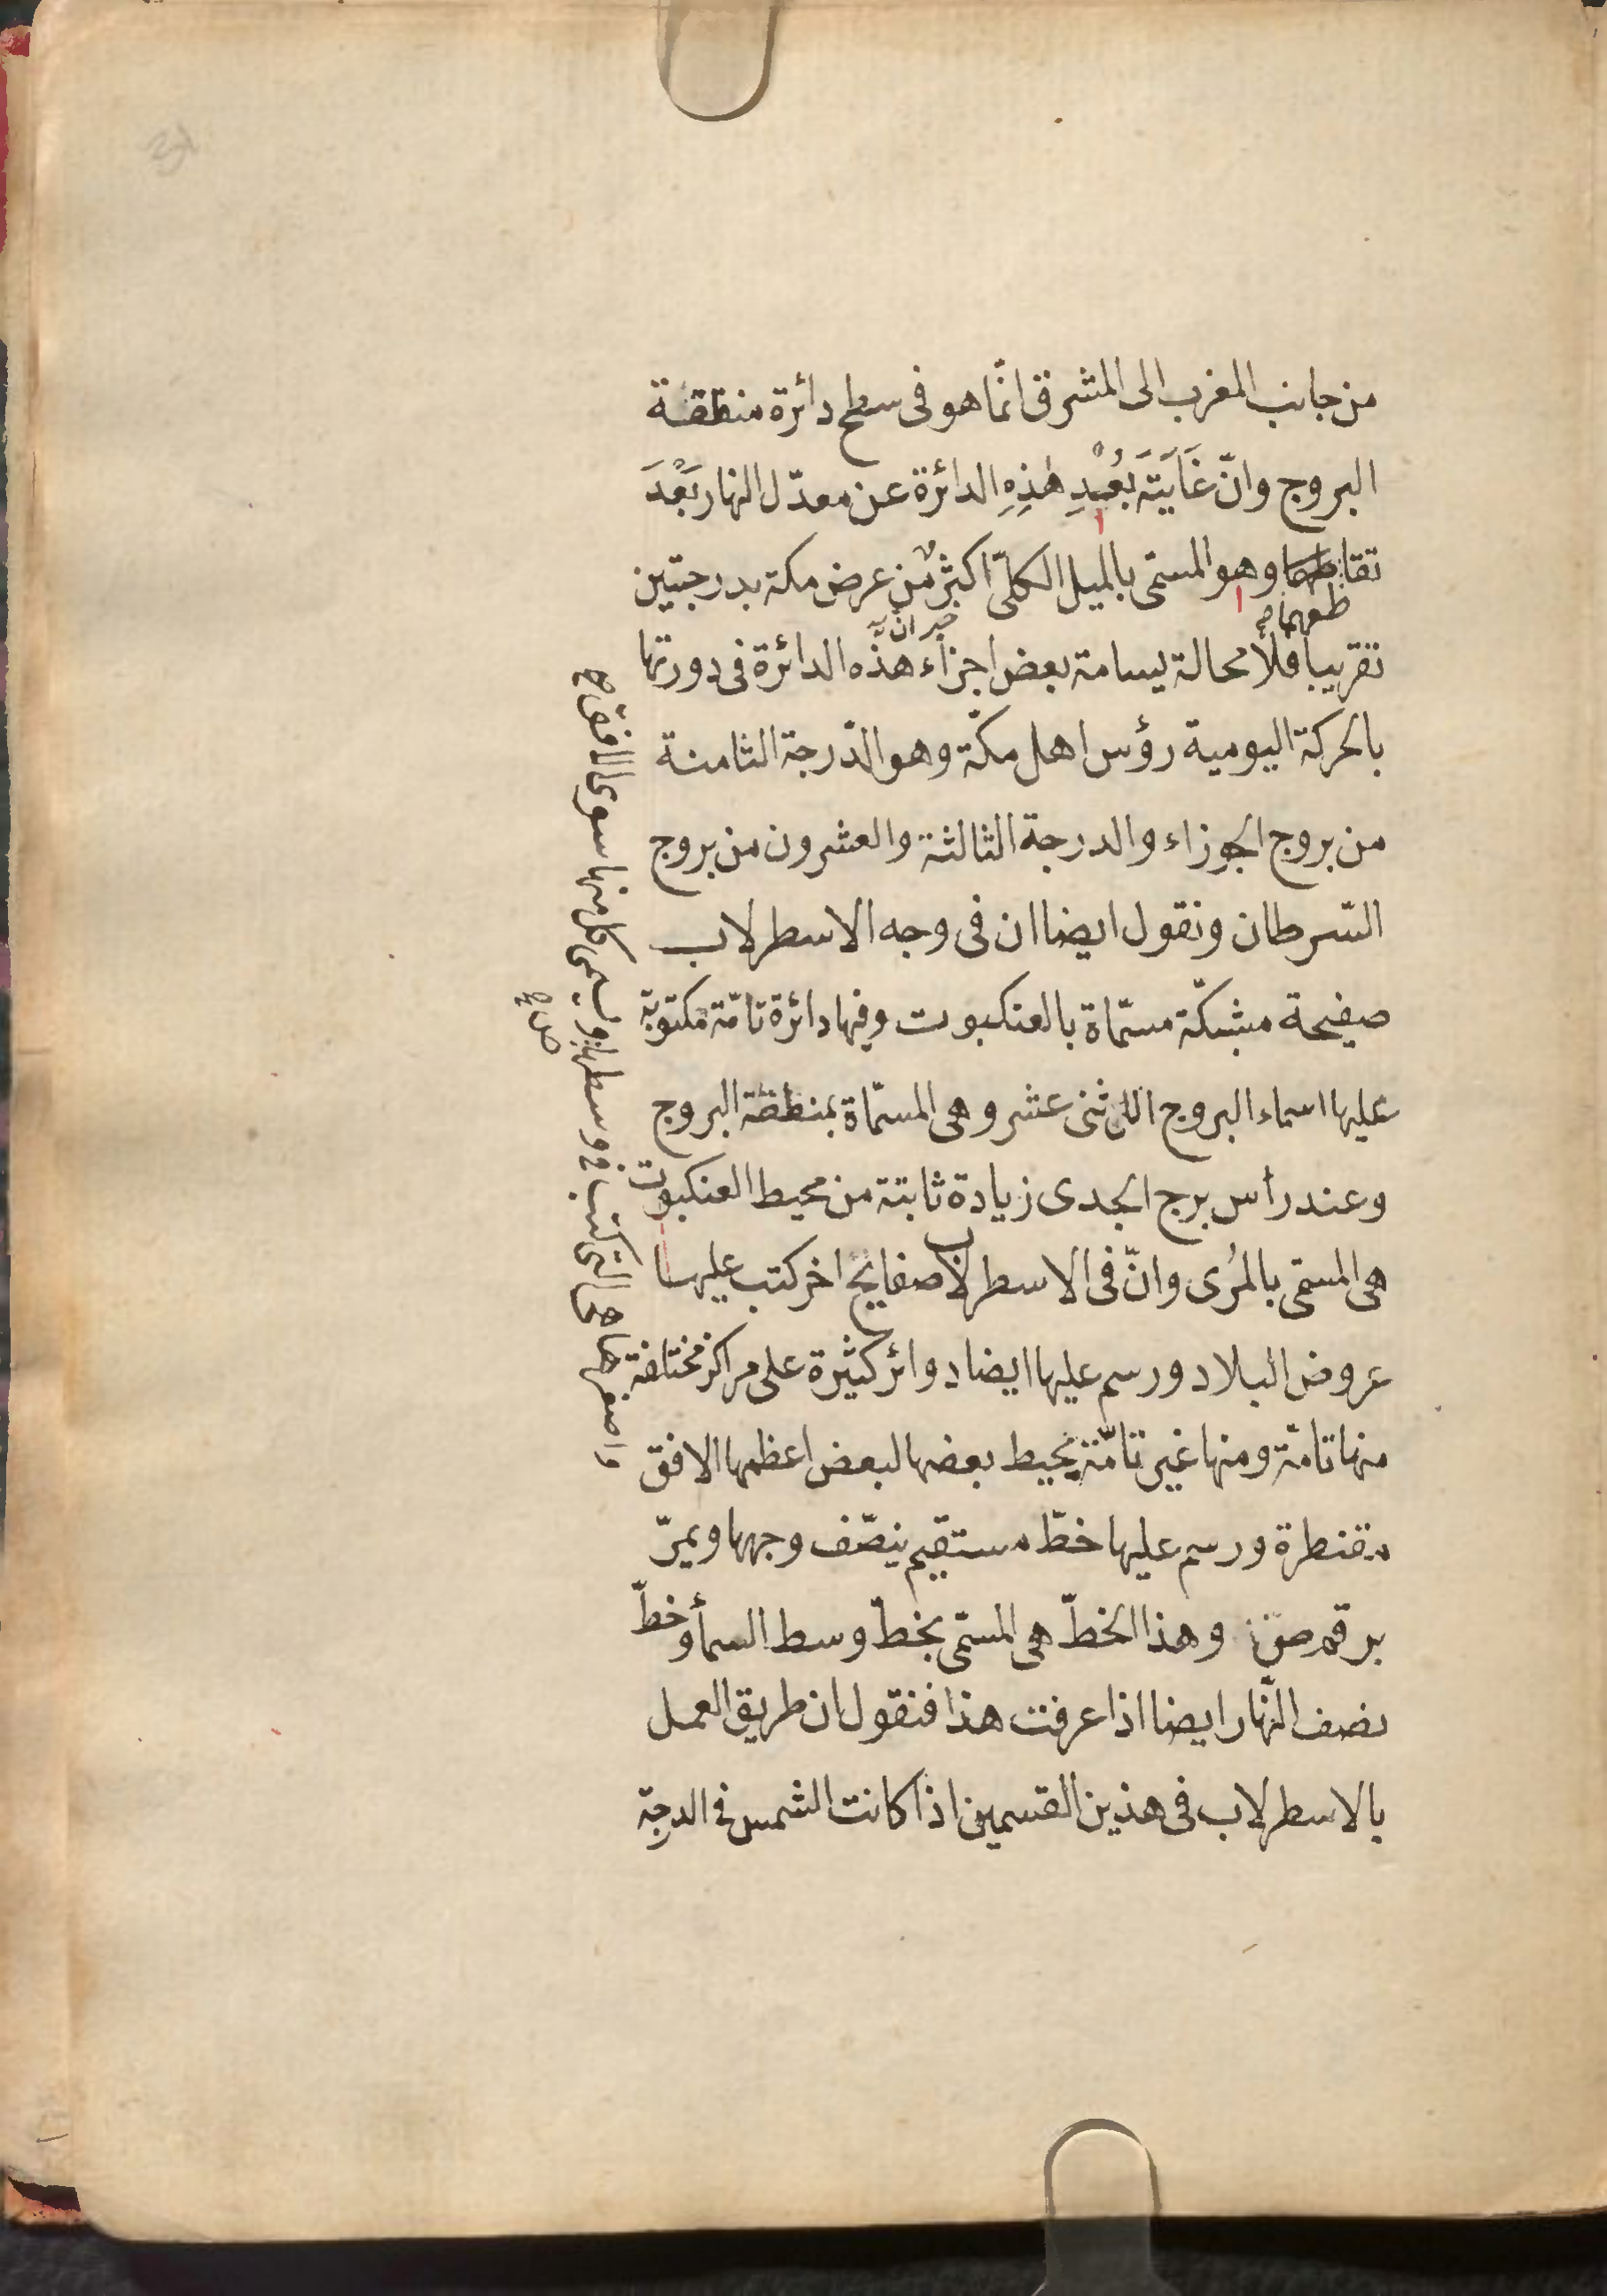 من جانب المغرب الى المشرق انّما هو فى سطح دائرة منطقة
البروج وانّ غَايَتَه بُعْدِ هٰذِهِ الدائرة عن معدّل النهار بَعْدَ
تقاطعهما وهو المسمّى بالميل الكلّىّ اكثر من عرض مكة بدرجتين
طعهما صح
خبر انّ
تقريبا فلا محالة يسامة بعض اجزاء هذه الدائرة فى دورتها
بالحركة اليومية رؤس اهل مكّة وهو الدّرجة الثامنة
من بروج الجوزاء والدرجة الثالثة والعشرون من بروج
السّرطان ونقول ايضا ان فى وجه الاسطرلاب
صفيحة مشبكّة مسمّاة بالعنكبوت وفيها دائرة تامّة مكتوبة
عليها اسماء البروج الاثنى عشر وهى المسمّاة بمنطقة البروج
وعند رأس برج الجدى زيادة ثابتة من محيط العنكبوت
هى المسمّى بالمُرى وانّ فى الاسطرلاب صفايح اخر كتب عليها
عروض البلاد ورسم عليها ايضا دوائر كثيرة على مراكز مختلفة
منها تامّة ومنها غير تامّة يحيط بعضها لبعض اعظمها الافق
مقنطرة ورسم عليها خطّ مستقيم ينصّف وجهها ويمرّ
برقم ص وهذا الخطّ هى المسمّى بخطّ وسط السمأ وخطّ
نصف النّهار ايضا اذا عرفت هذا فنقول ان طريق العمل
بالاسطرلاب فى هذين القسمين اذا كانت الشمس فى الدرجة
واصغرها هى التى كتب فى وسطها ص ويسمى كل منها سوى الافق